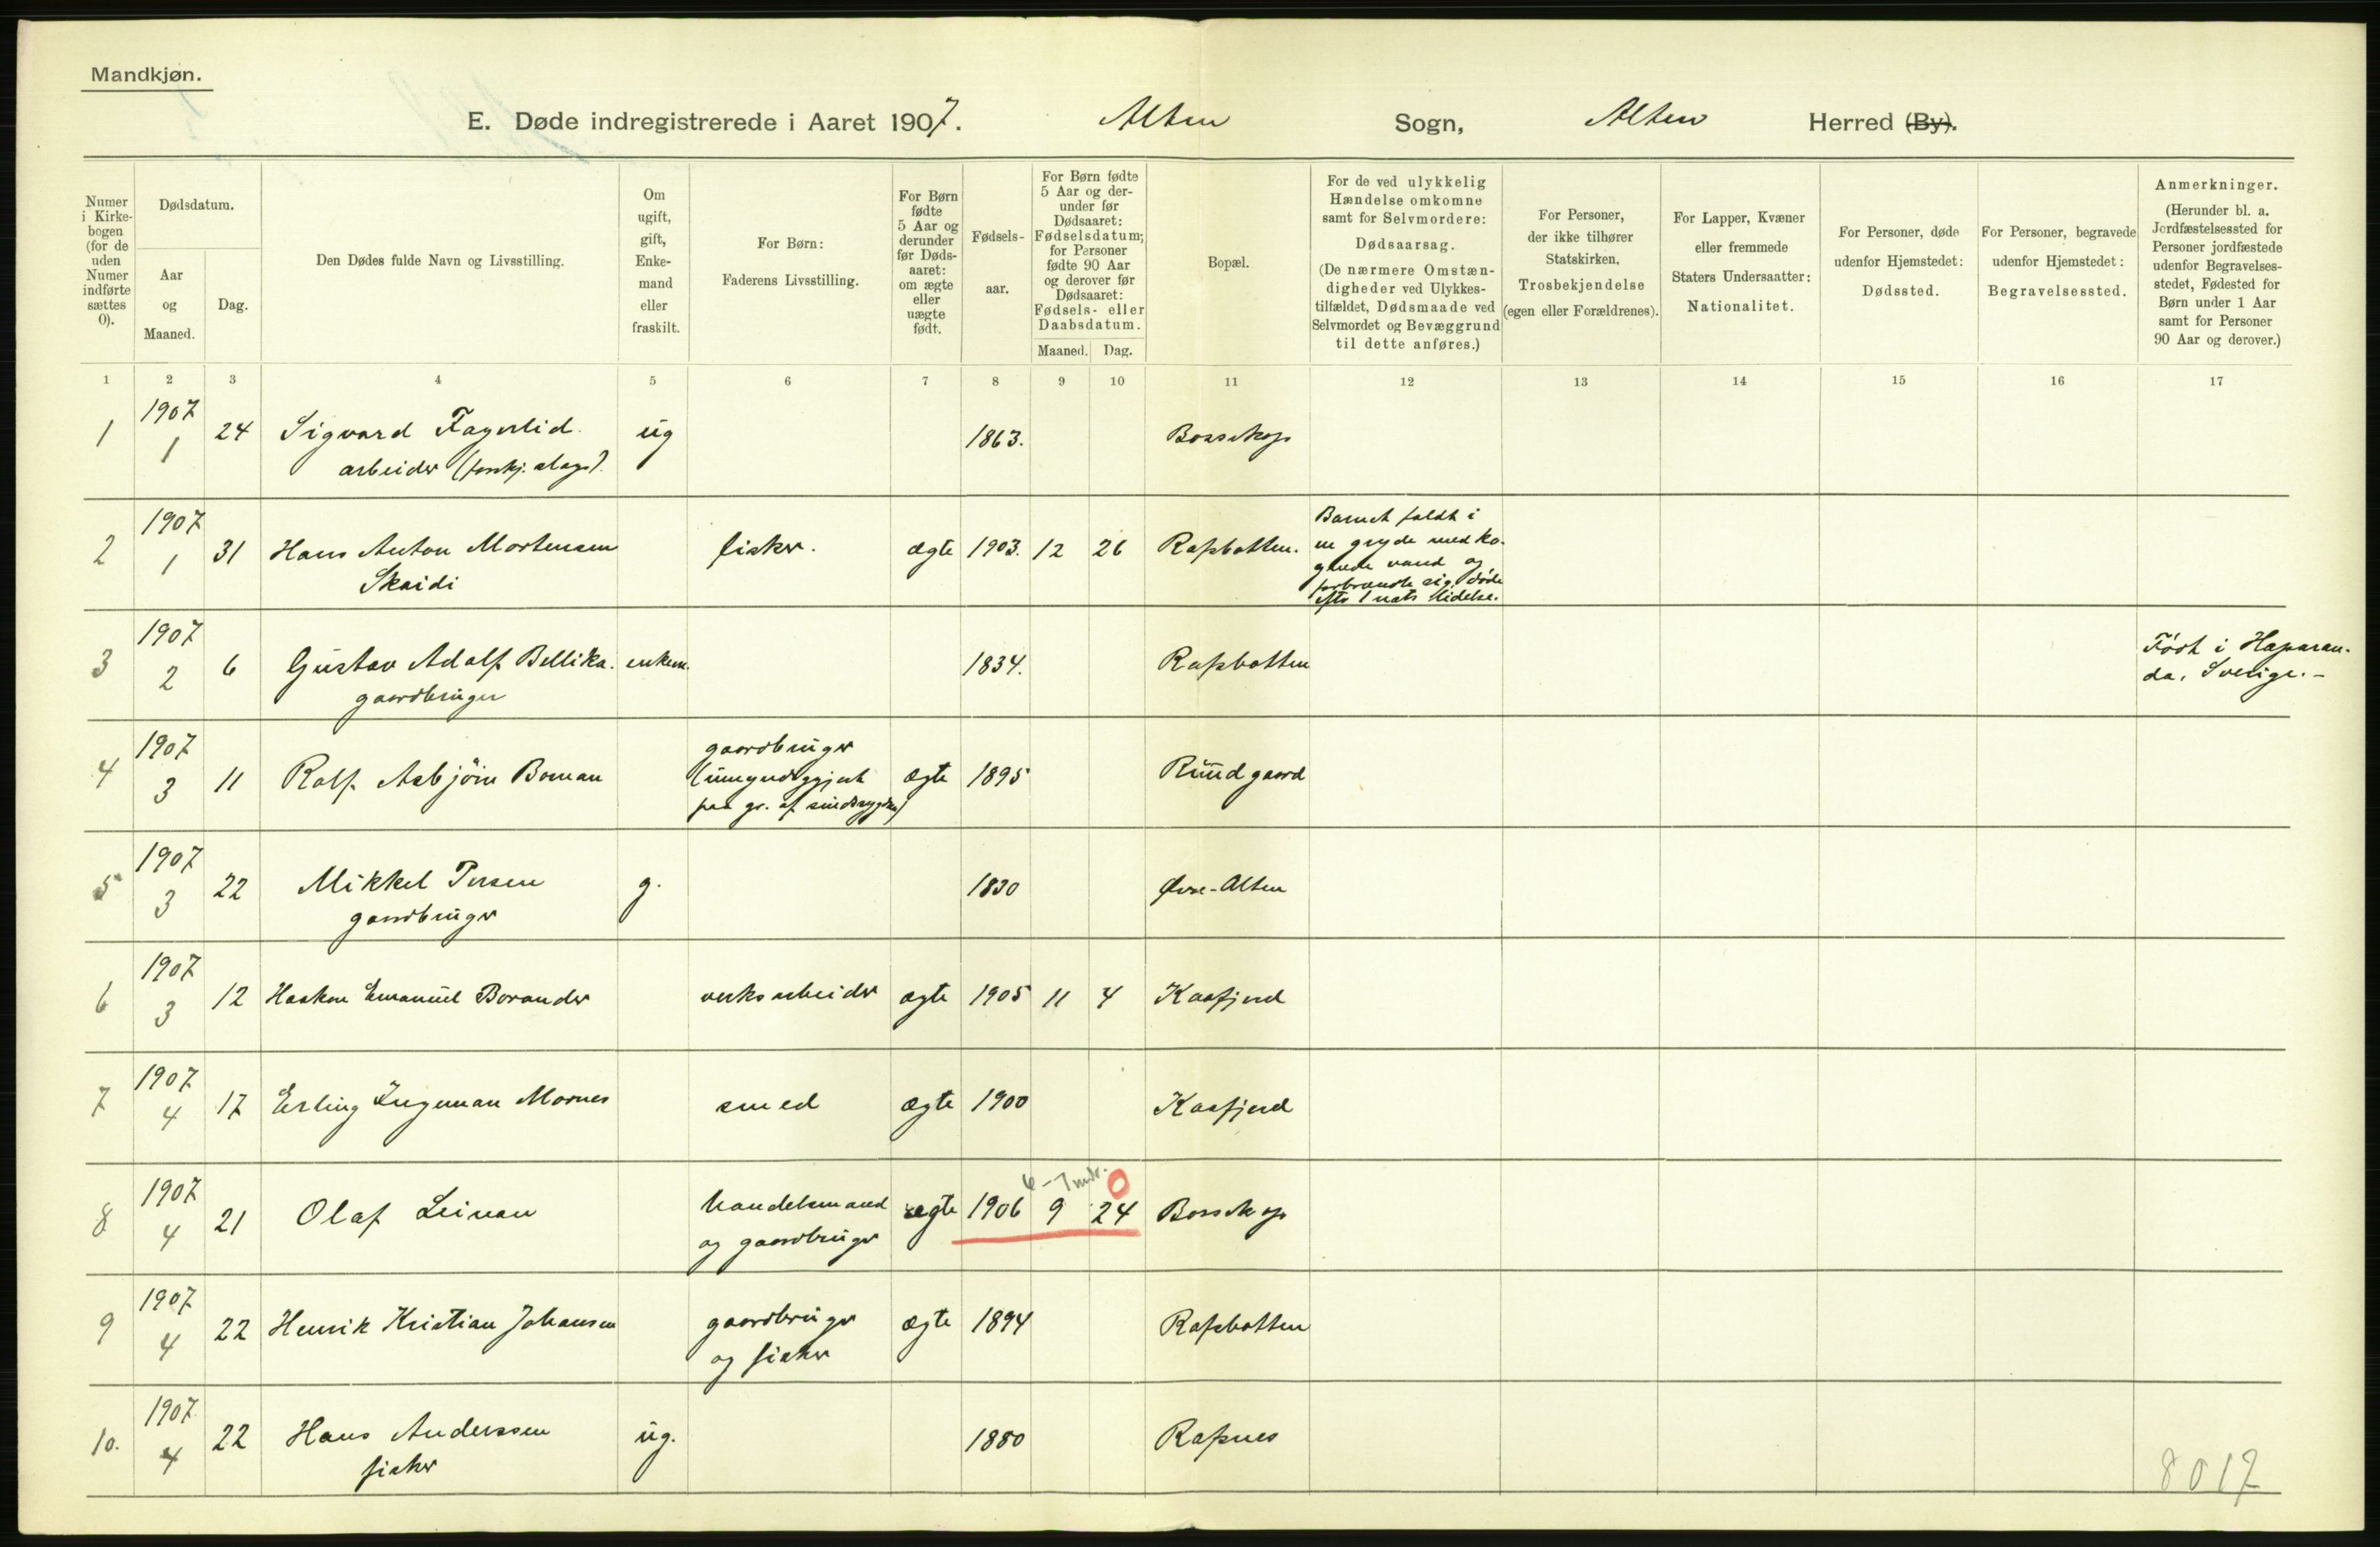 Mandkjøn.
E. Døde indregistrerede i Aaret 1907. Alten Sogn, Alten Herred (By).
Numer i Kirkebogen (for de uden Numer indførte sættes 0).
Dødsdatum.
Aar og Maaned.
Dag.
Den Dødes fulde Navn og Livsstilling.
Om ugift, gift, Enkemand eller fraskilt.
For Børn:
Faderens Livsstilling.
For Børn fødte 5 Aar og derunder før Dødsaaret: om ægte eller uægte født.
Fødselsaar.
For Børn fødte 5 Aar og derunder før Dødsaaret: Fødselsdatum; for Personer fødte 90 Aar og derover før Dødsaaret: Fødsels- eller Daabsdatum.
Maaned. Dag.
Bopæl.
For de ved ulykkelig Hændelse omkomne samt for Selvmordere:
Dødsaarsag.
(De nærmere Omstændigheder ved Ulykkestilfældet, Dødsmaade ved Selvmordet og Bevæggrund til dette anføres.)
For Personer, der ikke tilhører Statskirken,
Trosbekjendelse
(egen eller Forældrenes).
For Lapper, Kvæner eller fremmede Staters Undersaatter:
Nationalitet.
For Personer, døde udenfor Hjemstedet:
Dødssted.
For Personer, begravede udenfor Hjemstedet:
Begravelsessted.
Anmerkninger.
(Herunder bl. a. Jordfæstelsessted for Personer jordfæstede udenfor Begravelsesstedet, Fødested for Børn under 1 Aar samt for Personer 90 Aar og derover.)
1 2 3 4 5 6 7 8 9 10 11 12 13 14 15 16 17
1 1907 1 24 Sigvard Fagerlid. ug 1863. Bossekop
arbeider (forskj. slags).
2 1907 1 31 Hans Anton Mortensen fisker. ægte 1903. 12 26 Rafsbotten.
Skaidi
Barnet faldt i
en gryde med ko-
gende vand og
forbrændte sig, døde
efter 1 nats lidelse.
3 1907 2 6 Gustav Adolf Bellika. enkem. 1834. Rafsbotten
gaardbruger
Født i Haparan-
da, Sverige.-
4 1907 3 11 Rolf Asbjörn Boman ægte 1895 Rundgaard
gaardbruger
(umyndiggjort
paa gr. af sindssygdom)
5 1907 3 22 Mikkel Persen g. 1830 Øvre-Alten
gaardbruger
6 1907 3 12 Haakon Emanuel Borander verksarbeider ægte 1905 11 4 Kaafjord
7 1907 4 17 Erling Ingeman Mornes smed ægte 1900 Kaafjord
6-7 mdr. 0
8 1907 4 21 Olaf Leinan handelsmand ægte 1906 9 24 Bossekop
og gaardbruger
9 1907 4 22 Henrik Kristian Johansen gaardbruger ægte 1894 Rafsbotten
og fisker
10. 1907 4 22 Hans Anderssen ug. 1880 Rafsnes
fisker
8017